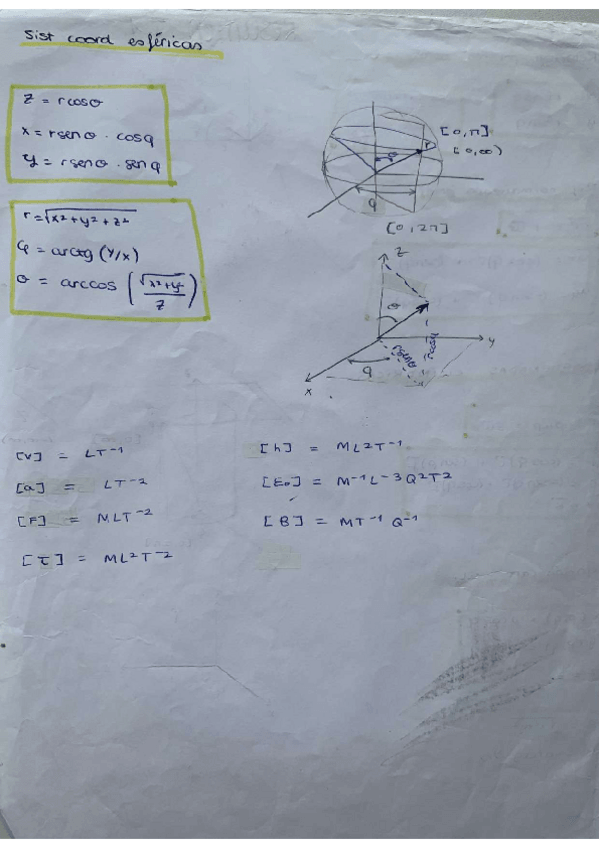 Sist coord esféricas
z = rcosθ
x = rsenθ · cosφ
y = rsenθ · senφ
r = √x² + y² + z²
φ = arctg (y/x)
θ = arccos (√x²+y² / z)
[0, π]
[0, ∞)
r
θ
φ
[0, 2π]
z
θ
y
rsenθ
rcosθ
φ
x
[v] = LT⁻¹
[a] = LT⁻²
[F] = MLT⁻²
[τ] = ML²T⁻²
[h] = ML²T⁻¹
[E₀] = M⁻¹L⁻³Q²T²
[B] = MT⁻¹Q⁻¹